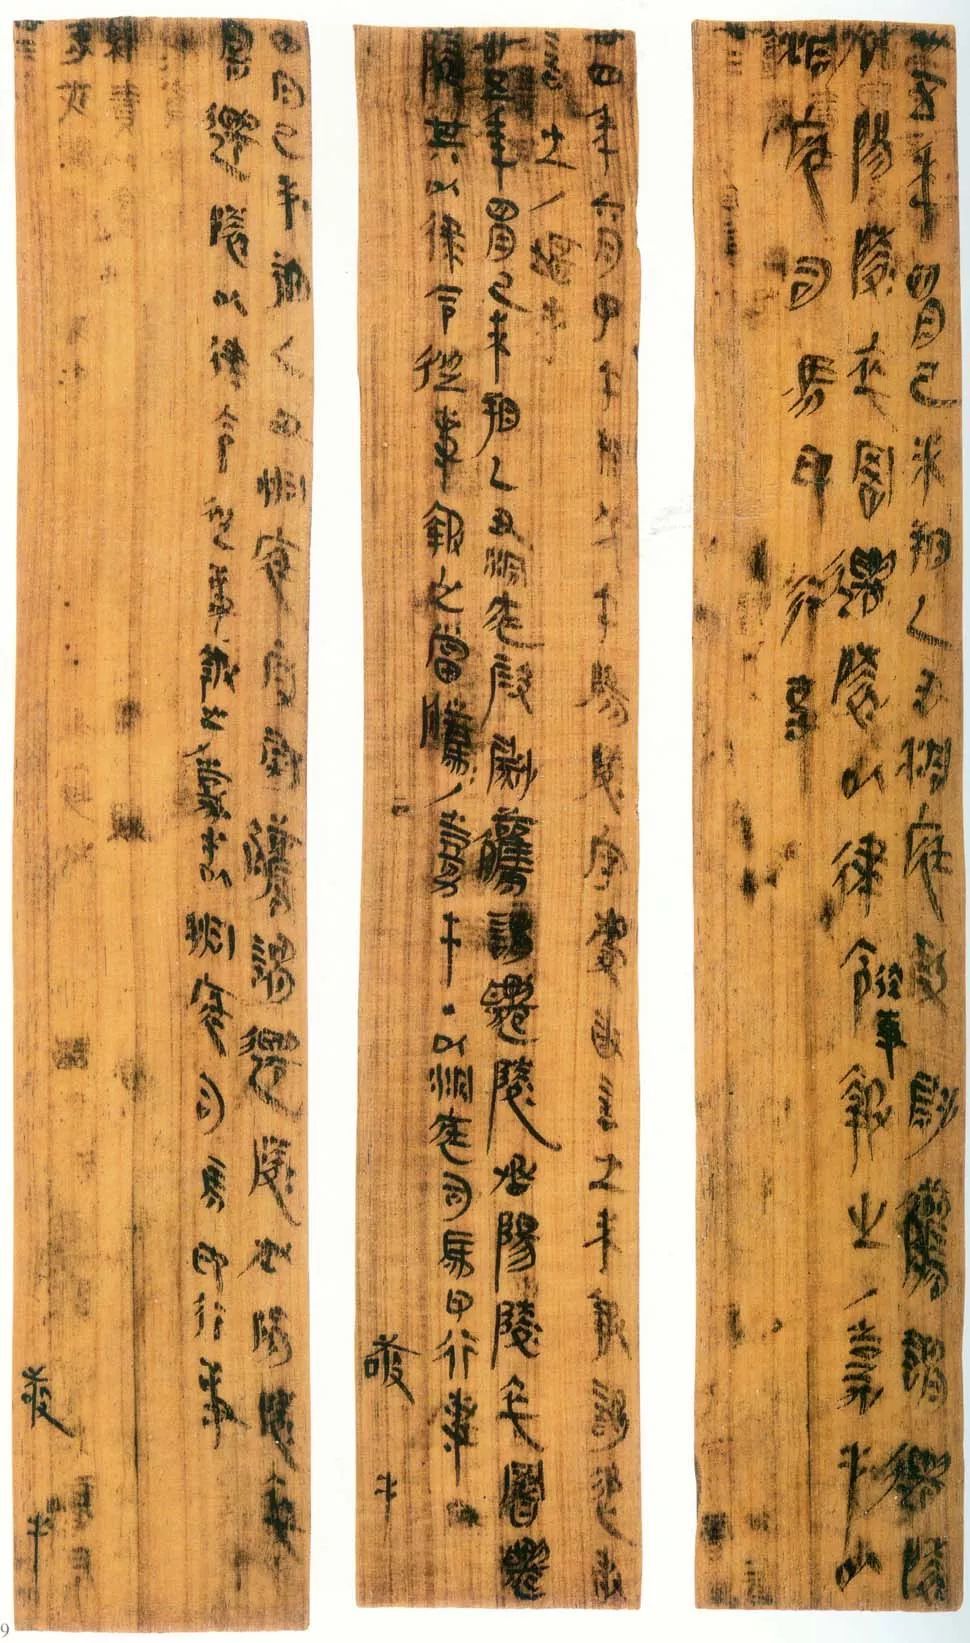 卅五年四月己未朔乙丑洞庭叚尉觿謂遷陵
丞陽陵卒署遷陵以律令從事報之/嘉手以
洞庭司馬印行事
卅四年六月甲午朔戊午陽陵守慶敢言之未報謁追敢
言之/堪手
卅五年四月己未朔乙丑洞庭叚尉觿謂遷陵丞陽陵卒署遷
陵其以律令從事報之當騰騰/嘉手·以洞庭司馬印行事
敬手
四月己未朔乙丑洞庭叚尉觿謂遷陵丞陽陵卒
署遷陵以律令從事報之/嘉手以洞庭司馬印行事
敬手
9